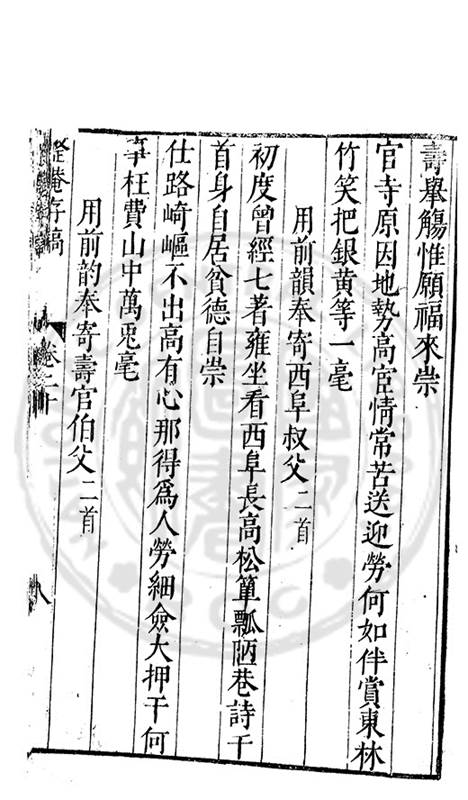 壽舉觴惟願福來崇
官寺原因地勢高宦情常苦送迎勞何如伴賞東林
竹笑把銀黄等一毫
用前韻奉寄西阜叔父二首
初度曾經七著雍坐看西阜長高松簞瓢陋巷詩千
首身自居貧德自崇
仕路崎嶇不出高有心那得爲人勞細僉大押干何
事枉費山中萬兎毫
用前韵奉寄壽官伯父二首
整菴存稿
卷二十
八